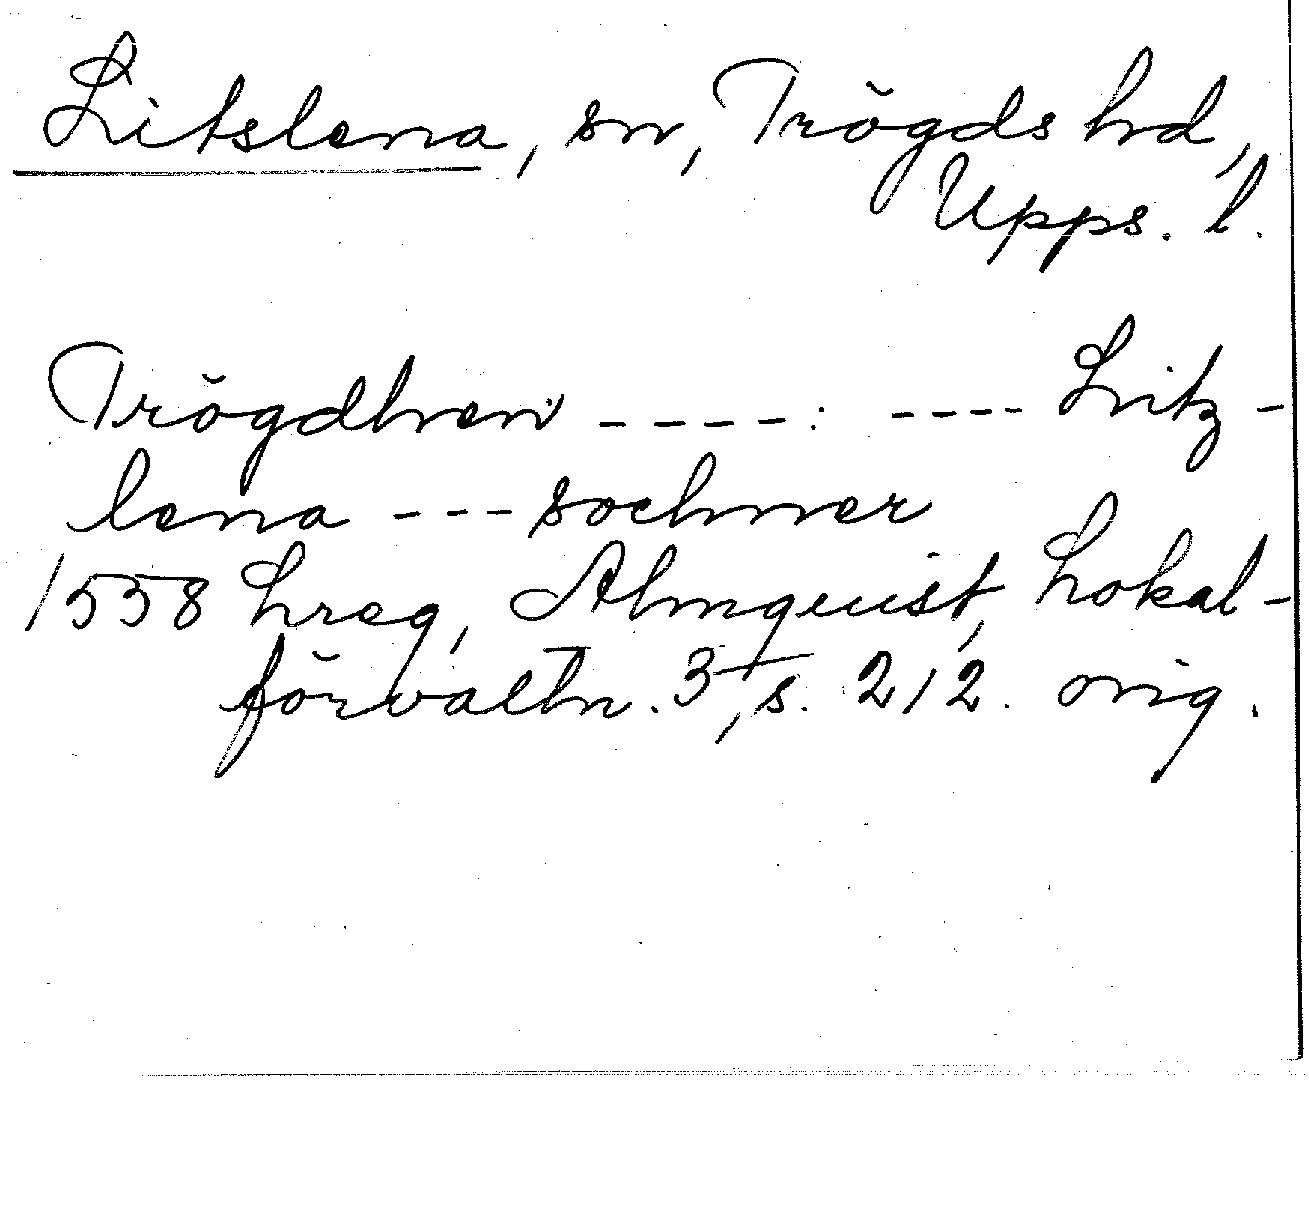 Litslena, sn, Trögds hd,
Upps. l.
Trögdhen ----: ---- Litz-
lena --- sochner
1538 Lreg, Almquist, Lokal-
förvaltn. 3, s. 212. orig.